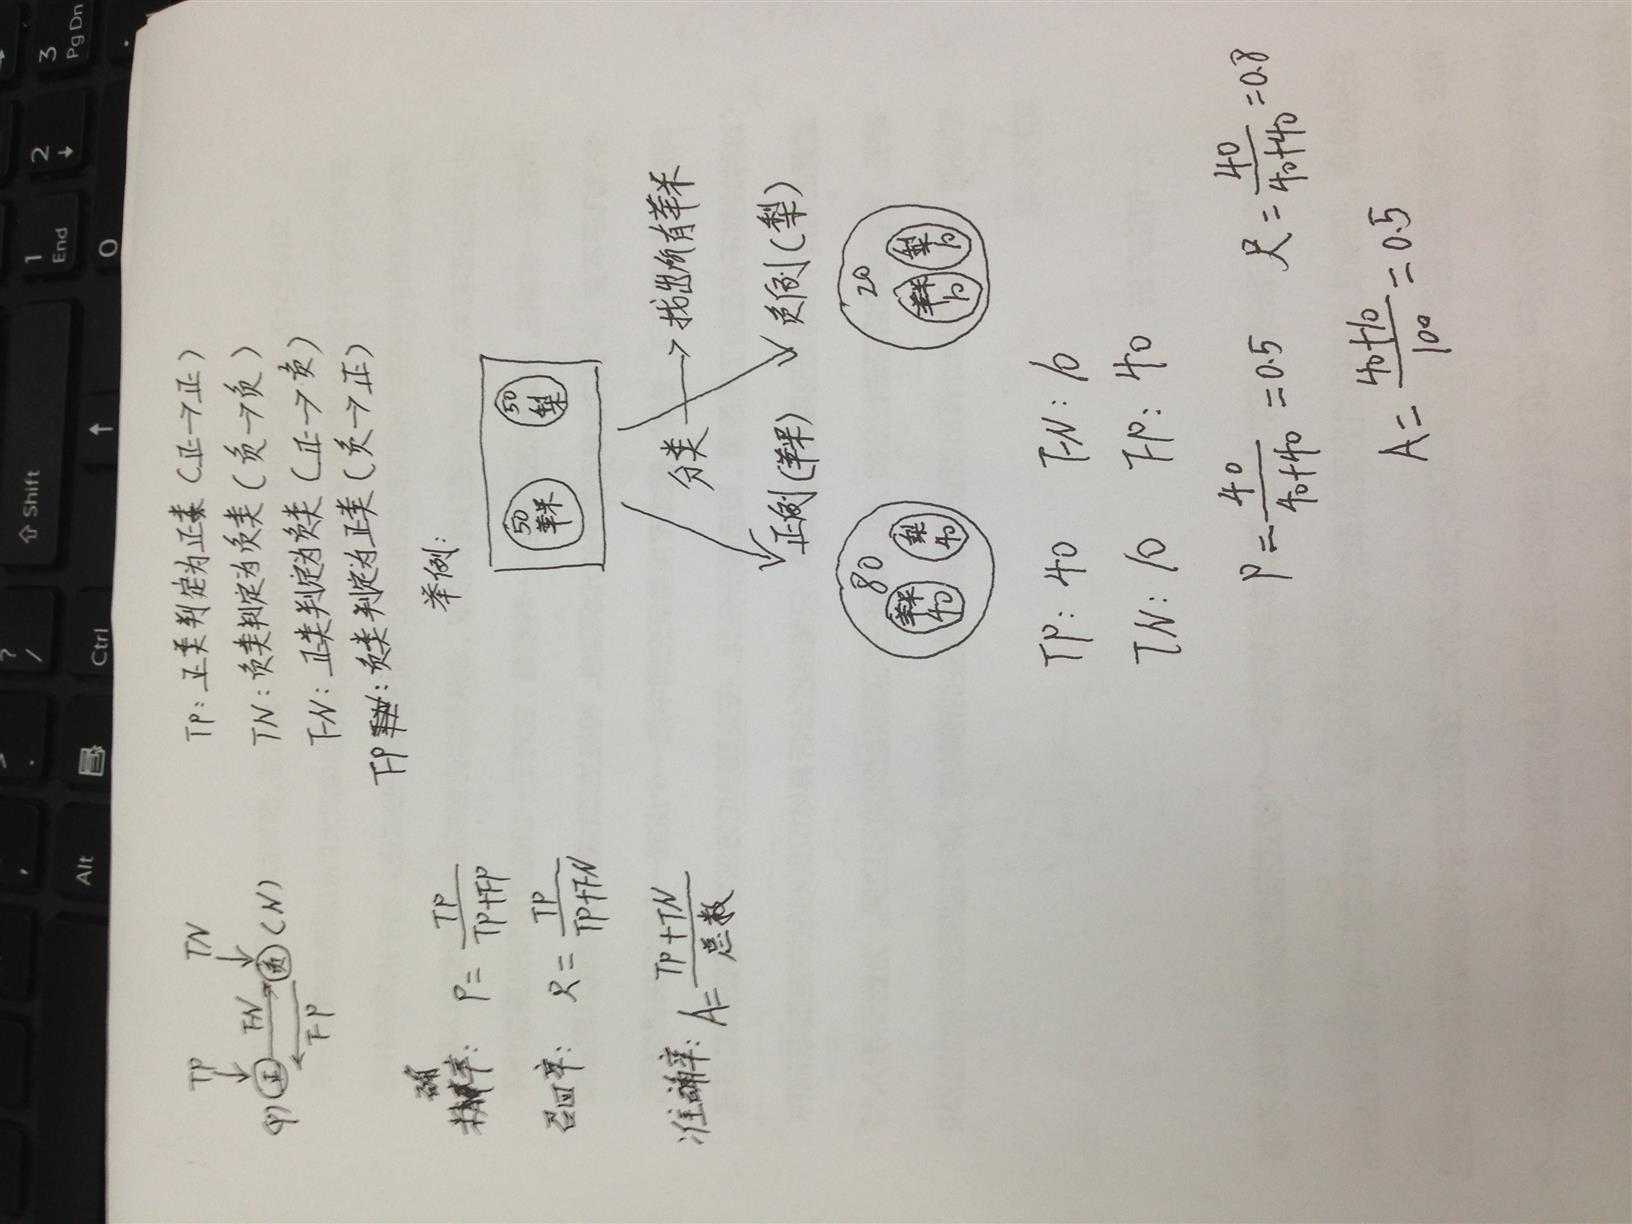 TP TN
(P) 正 FN 负 (N)
FP
TP: 正类判定为正类 (正→正)
TN: 负类判定为负类 (负→负)
FN: 正类判定为负类 (正→负)
FP: 负类判定为正类 (负→正)
确率: P = TP / TP+FP
召回率: R = TP / TP+FN
准确率: A = TP+TN / 总数
举例:
50 苹果 50 梨
分类 → 找出所有苹果
正例(苹果) 负例(梨)
80 苹果 40 梨 40
20 苹果 10 梨 10
TP: 40 FN: 10
TN: 10 FP: 40
P = 40 / 40+40 = 0.5 R = 40 / 40+40 = 0.8
A = 40+10 / 100 = 0.5
Alt
Ctrl
? /
Shift
↑
1 End
0
2 ↓
3 Pg Dn
.